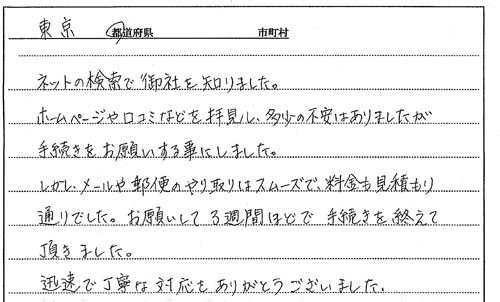 東京 都道府県 市町村
ネットの検索で御社を知りました。
ホームページや口コミなどを拝見し、多少の不安はありましたが
手続きをお願いする事にしました。
しかし、メールや郵便のやり取りはスムーズで、料金も見積もり
通りでした。お願いして3週間ほどで手続きを終えて
頂きました。
迅速で丁寧な対応をありがとうございました。